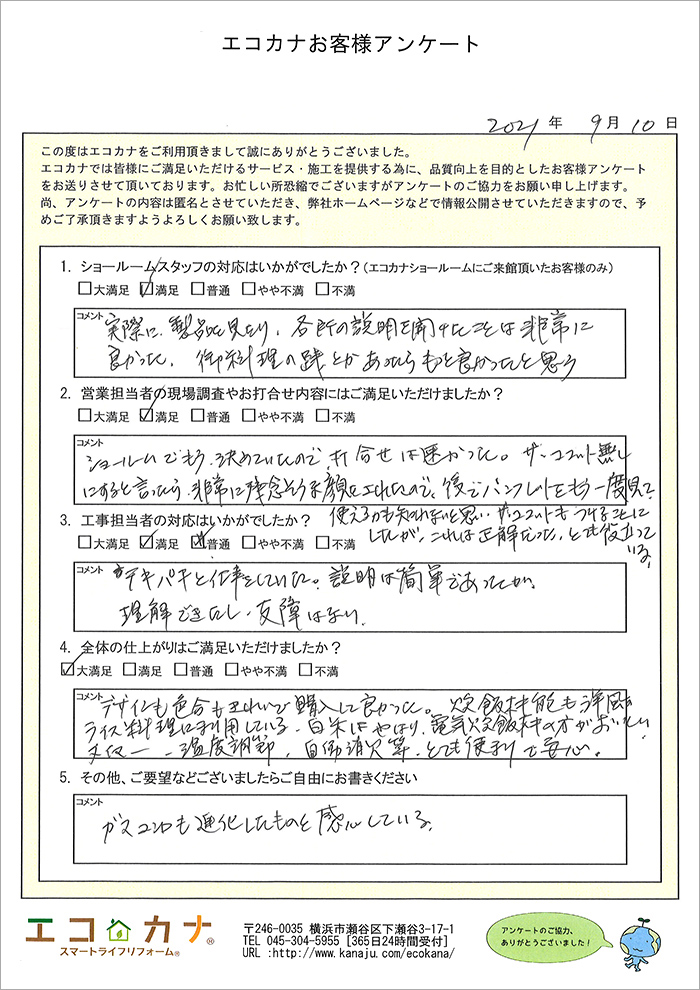 エコカナお客様アンケート
2021 年 9 月 10 日
この度はエコカナをご利用頂きまして誠にありがとうございました。
エコカナでは皆様にご満足いただけるサービス・施工を提供する為に、品質向上を目的としたお客様アンケート
をお送りさせて頂いております。お忙しい所恐縮でございますがアンケートのご協力をお願い申し上げます。
尚、アンケートの内容は匿名とさせていただき、弊社ホームページなどで情報公開させていただきますので、予
めご了承頂きますようよろしくお願い致します。
1. ショールームスタッフの対応はいかがでしたか？(エコカナショールームにご来館頂いたお客様のみ)
□大満足 ☑満足 □普通 □やや不満 □不満
コメント
実際に、製品を見たり、各所の説明を聞けたことは非常に
良かった。御料理の践とかあったらもっと良かったと思う
2. 営業担当者の現場調査やお打合せ内容にはご満足いただけましたか？
□大満足 ☑満足 □普通 □やや不満 □不満
コメント
ショールームでもう決めていたので、打合せは速かった。ザ・ココット無し
にすると言ったら、非常に残念そうな顔をされたので、後でパンフレットをもう一度見て
使えるかも知れないと思い、ザ・ココットもつけることに
したが、これは正解だった。とても役立って
いる。
3. 工事担当者の対応はいかがでしたか？
□大満足 ☑満足 ☑普通 □やや不満 □不満
コメント
テキパキと仕事をしていた。説明は簡単であったが、
理解できたし、支障はない。
4. 全体の仕上がりはご満足いただけましたか？
☑大満足 □満足 □普通 □やや不満 □不満
コメント
デザインも色合もきれいで購入して良かった。炊飯機能も洋風
ライス料理に利用している。白米はやはり、電気炊飯器の方がおいしい
タイマー、温度調節、自動消火等、とても便利で安心。
5. その他、ご要望などございましたらご自由にお書きください
コメント
ガスコンロも進化したものと感心している。
エコカナ®
スマートライフリフォーム®
〒246-0035 横浜市瀬谷区下瀬谷3-17-1
TEL 045-304-5955 [365日24時間受付]
URL :http://www.kanaju.com/ecokana/
アンケートのご協力、
ありがとうございました！